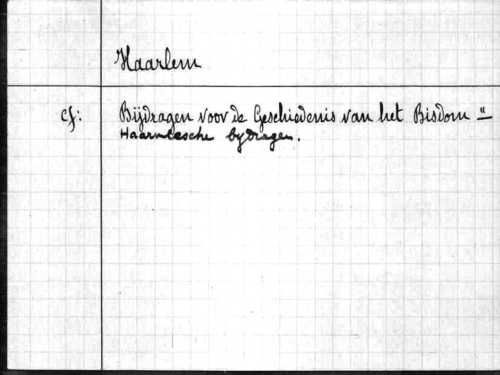 Haarlem
cf: Bijdragen voor de Geschiedenis van het Bisdom "
Haarlesche bydragen.